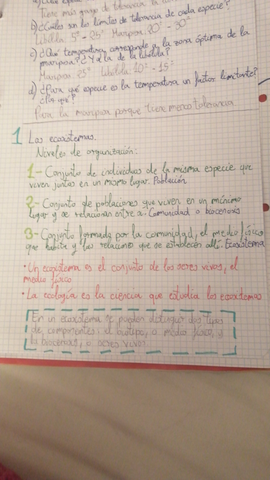 Tiene más rango de tolerancia la
b) ¿Cuáles son los límites de tolerancia de cada especie?
Libélula 5° - 25° Mariposa 20° - 30°
c) ¿Qué temperatura corresponde a la zona óptima de la
mariposa? ¿Y a la de la libélula?
Mariposa 25° Libélula 10° - 15°
d) ¿Para qué especie es la temperatura un factor limitante?
¿Por qué?
Para la mariposa porque tiene menor tolerancia
1 Los ecosistemas.
Niveles de organización:
1- Conjunto de individuos de la misma especie que
viven juntos en un mismo lugar. Población
2- Conjunto de poblaciones que viven en un mismo
lugar y se relacionan entre sí. Comunidad o biocenosis
3- Conjunto formado por la comunidad, el medio físico
que habita y las relaciones que se establecen allí. Ecosistema
• Un ecosistema es el conjunto de los seres vivos, el
medio físico
• La ecología es la ciencia que estudia los ecosistemas
En un ecosistema se pueden distinguir dos tipos
de componentes: el biotopo, o medio físico, y
la biocenosis, o seres vivos.